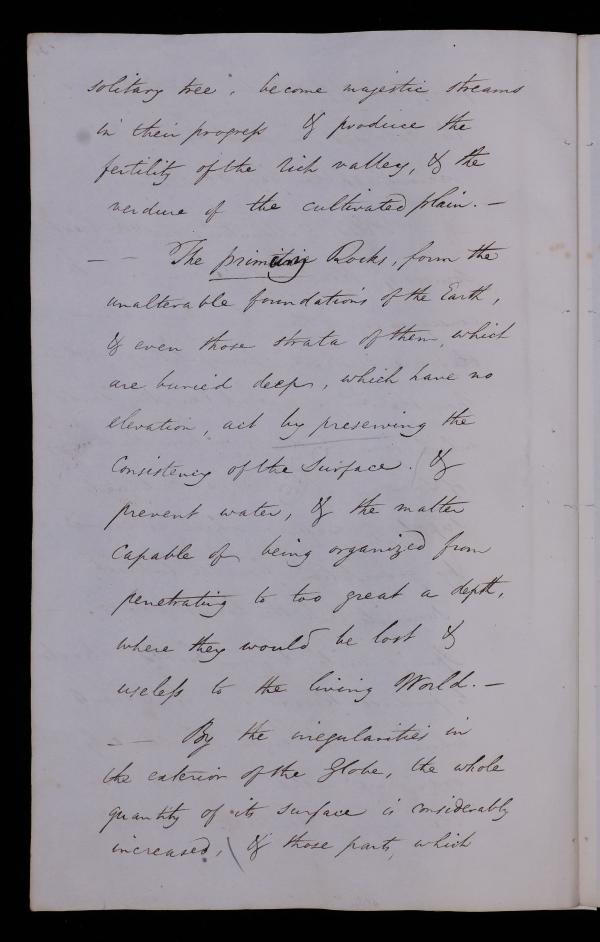 solitary tree, become majestic streams
in their progress & produce the
fertility of the rich valley, & the
verdure of the cultivated plain. —
— — The primitive Rocks, form the
unalterable foundations of the Earth,
& even those strata of them, which
are buried deep, which have no
elevation, act by preserving the
Consistency of the Surface. (&
prevent water, & the matter
capable of being organized from
penetrating to too great a depth,
where they would be lost &
useless to the living World. —
— — By the irregularities in
the exterior of the Globe, the whole
quantity of its surface is considerably
increased, ( & those parts, which